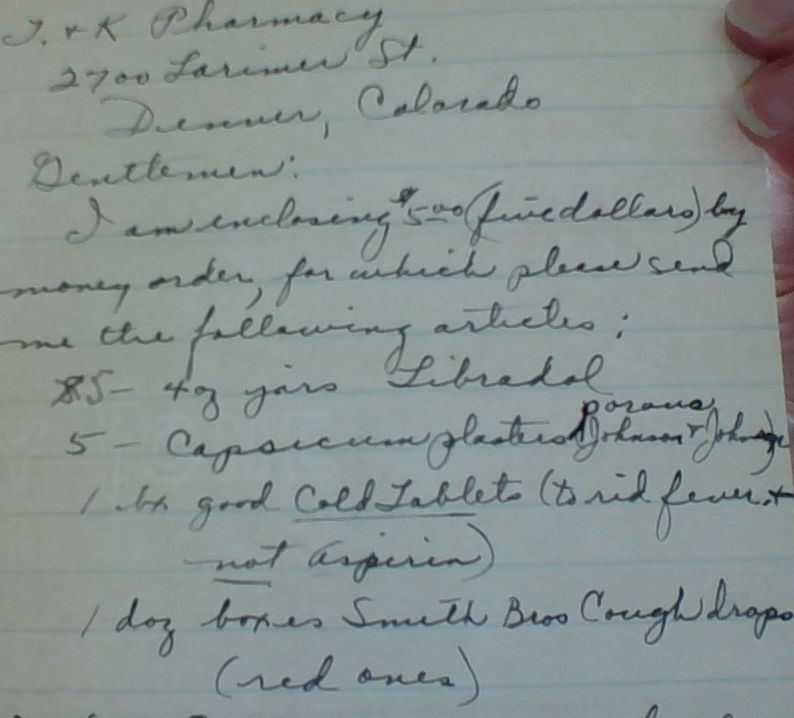 T. & K Pharmacy
2700 Larimer St.
Denver, Colorado
Gentlemen:
I am enclosing $5.00 (five dollars) by
money order, for which please send
me the following articles;
5 - 4 oz jars Libradol
porous
5 - Capsicum plasters (Johnson & Johnson)
1 bx good Cold Tablets (to rid fever, &
not Aspirin)
1 doz boxes Smith Bros Cough drops
(red ones)